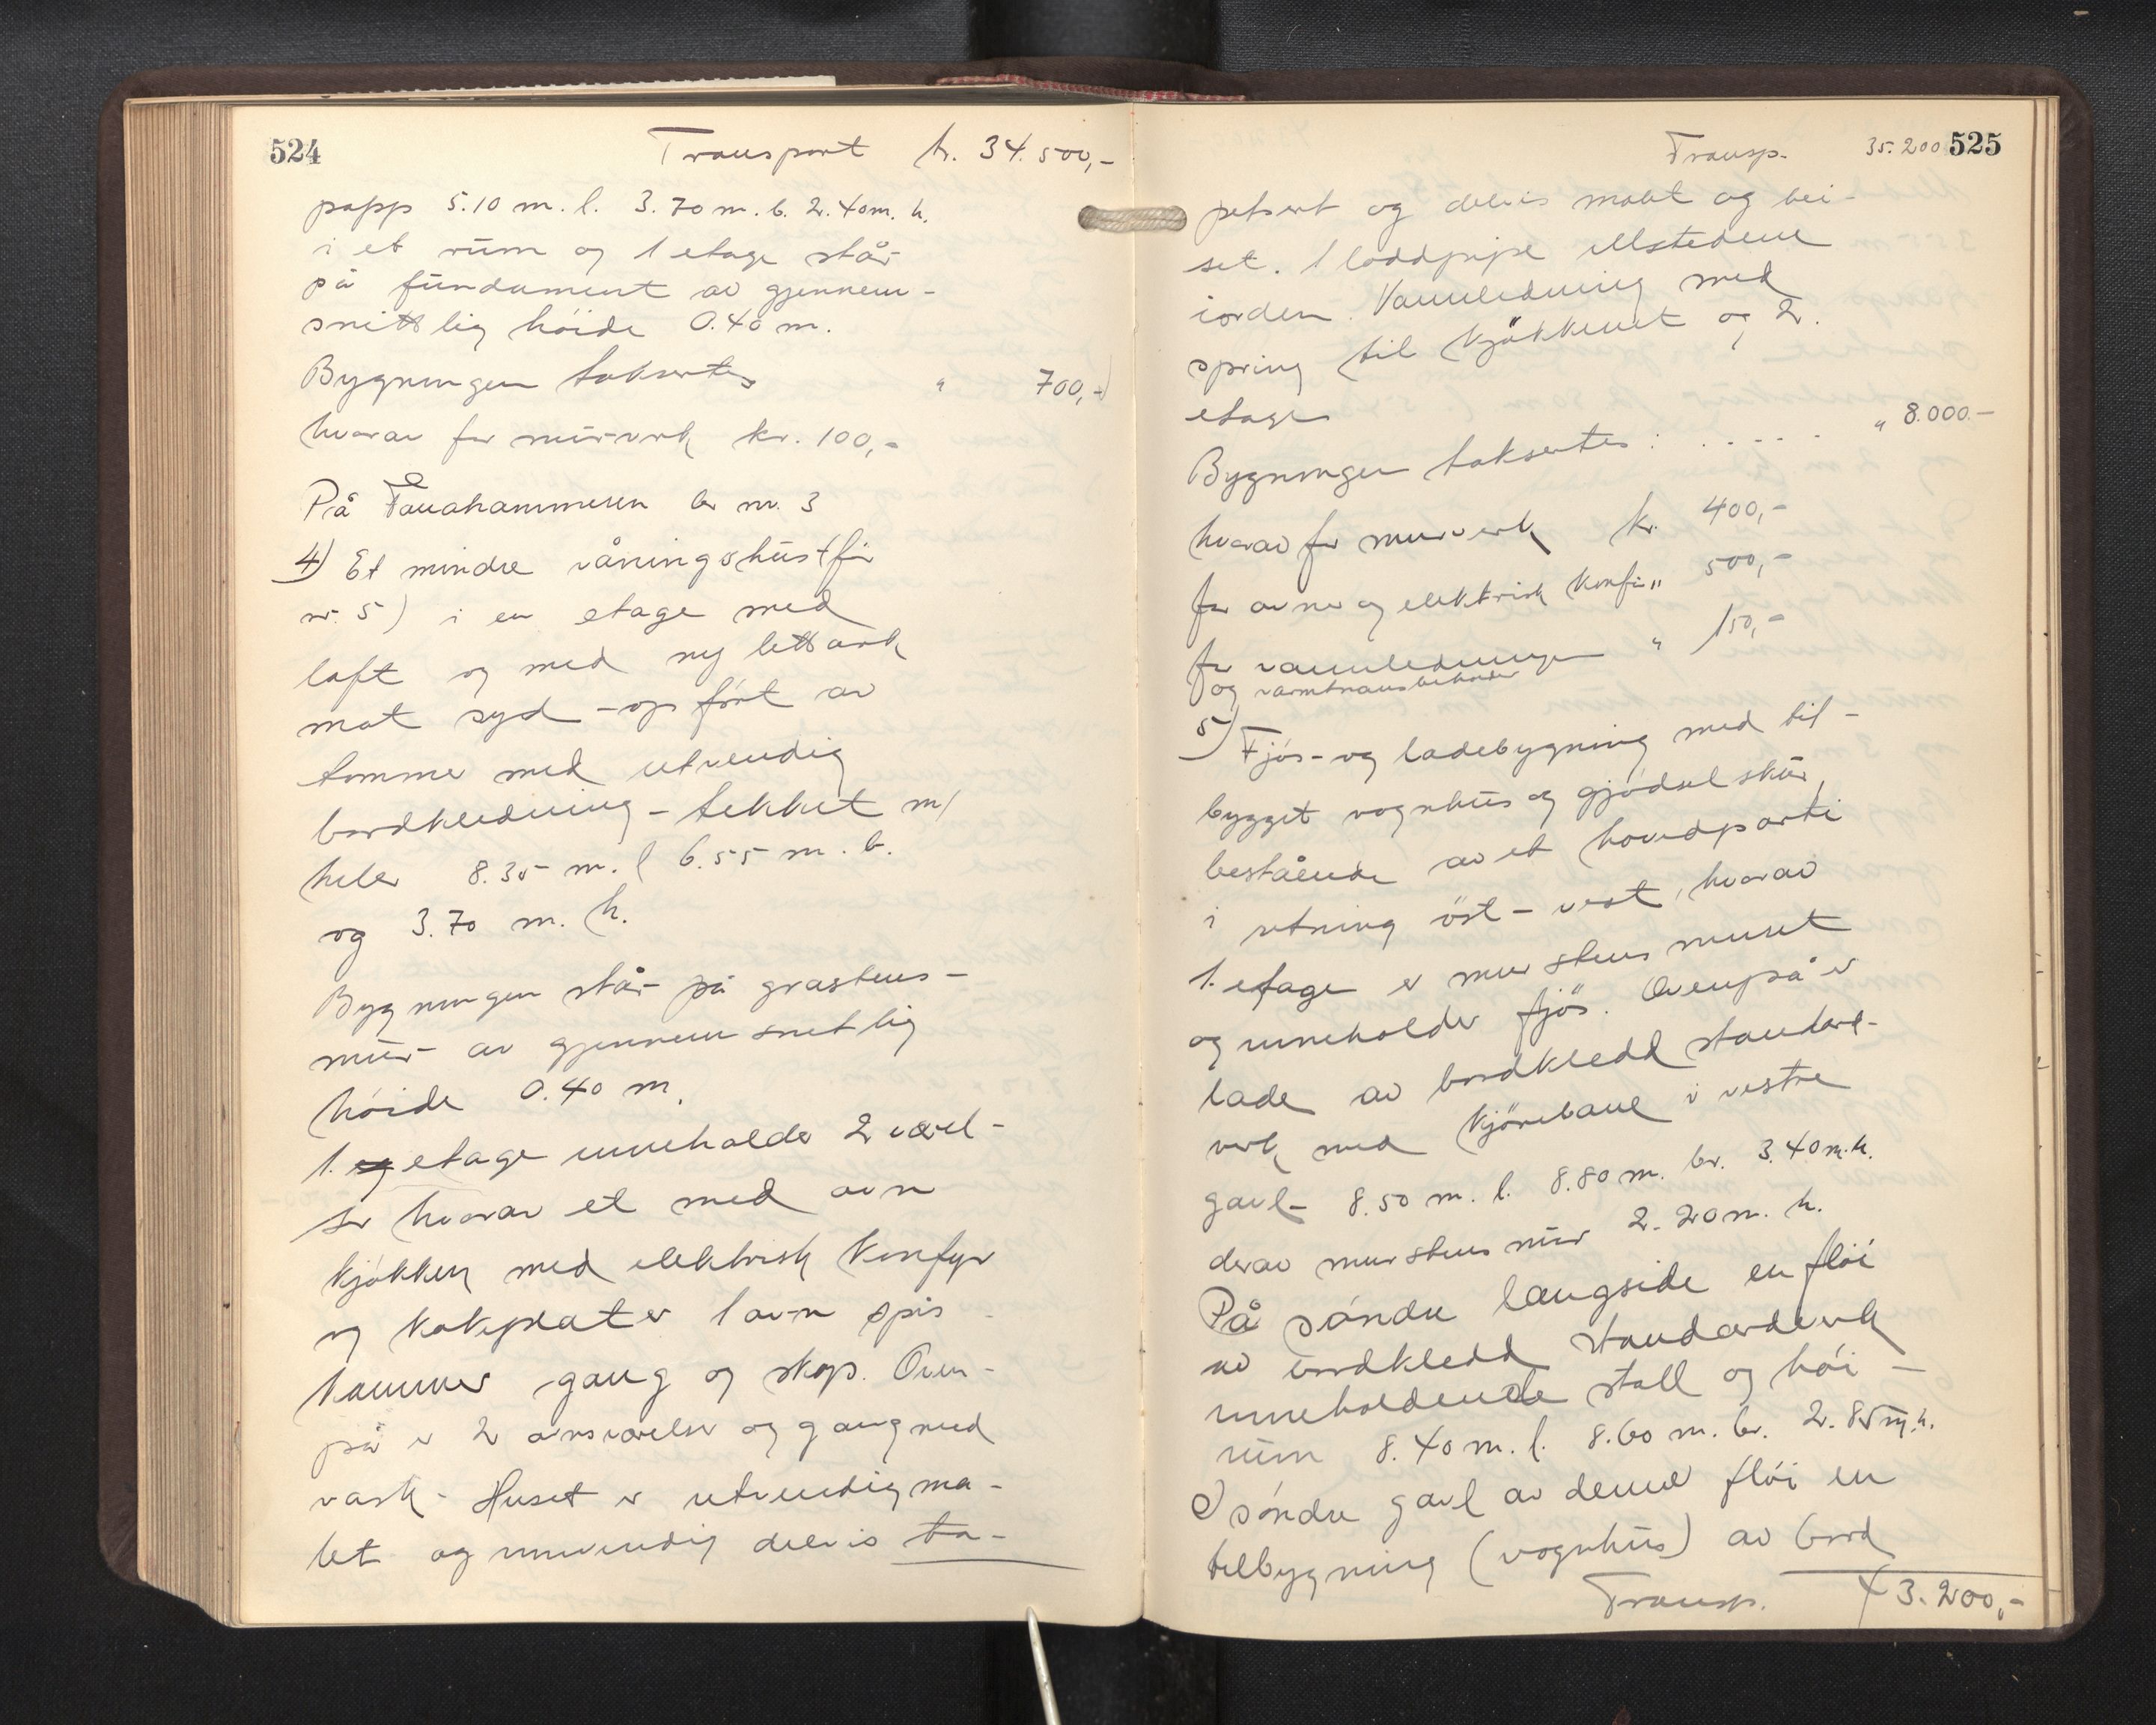 524
Transport kr. 34.500,-
papp 5.10 m. l. 3.70 m. b. 2.40 m. h.
i et rum og 1 etage står
på fundament av gjennem-
snittlig höide 0.40 m.
Bygningen takseres " 700,-
hvorav for murverk kr. 100,-
På Fanahammeren br nr. 3
4) Et mindre våningshus (för
nr. 5) i en etage med
loft og med ny lett ark
mot syd - opfört av
tömmer med utvendig
bordkledning - tekket m/
heler 8.35 m. l 6.55 m. b.
og 3.70 m. h.
Bygningen står på grastens-
mur av gjennemsnetlig
höide 0.40 m.
1. etage inneholder 2 værel-
ser hvorav et med ovn
kjökken med elektrisk komfyr
og kokeplater 1 ovn spis
kammer gang og skap. Oven-
på er 2 værelser og gang med
vask - Huset er utvendig ma-
let og innvendig delvis ta-
525
Transp. 35.200
petsert og delvis malt og bei-
set. 1 loddpipe ildstedene
iorden. Vannledning med
spring til kjökkenet og 2.
etage
Bygningen takseres : ..... " 8.000.-
hvorav for murverk kr. 400,-
for ovner og elektrisk komfir " 500,-
for vannledningen " 150,-
og varmtvannsbeholder
5) Fjös- og ladebygning med til-
bygget vognhus og gjödselskur,
bestående av et hovedparti
i retning öst - vest, hvorav
1. etage er murstens muret
og inneholder fjös. Ovenpå er
lade av bordkledd standard-
verk med kjörebane i vestre
gavl - 8.50 m. l. 8.80 m. br. 3.40 m. h.
derav murstens mur 2.20 m. h.
På söndre langside en flöi
av bordkledd standardverk
inneholdende stall og höi-
rum 8.40 m. l. 8.60 m. br. 2.85 m. h.
I söndre gavl av denne flöi en
tilbygning (vognhus) av bord
Transp. 43.200,-